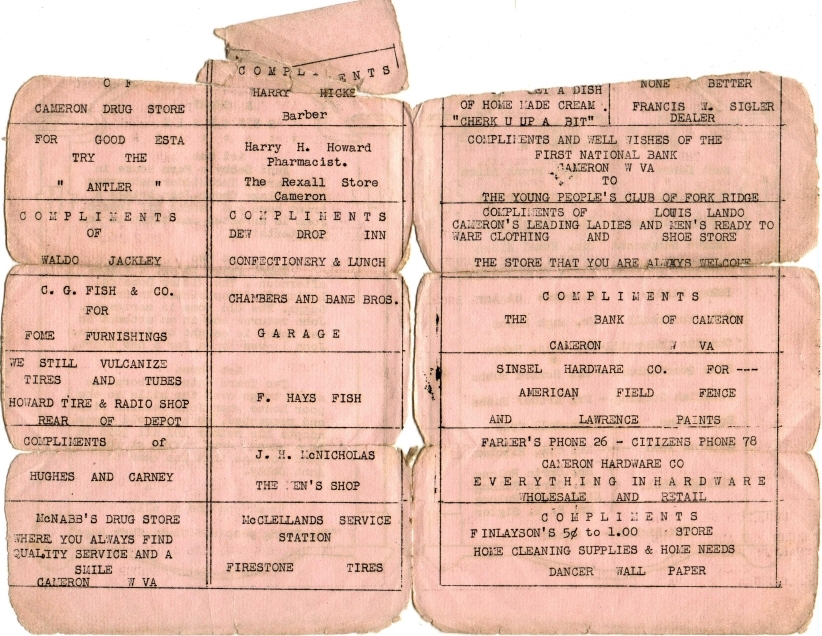 O F
CAMERON DRUG STORE
FOR GOOD ESTA
TRY THE
" ANTLER "
COMPLIMENTS
OF
WALDO JACKLEY
C. G. FISH & CO.
FOR
FOME FURNISHINGS
WE STILL VULCANIZE
TIRES AND TUBES
HOWARD TIRE & RADIO SHOP
REAR OF DEPOT
COMPLIMENTS of
HUGHES AND CARNEY
McNABB'S DRUG STORE
WHERE YOU ALWAYS FIND
QUALITY SERVICE AND A
SMILE
CAMERON W VA
COMPLIMENTS
HARRY
Barber
Harry H. Howard
Pharmacist.
The Rexall Store
Cameron
COMPLIMENTS
DEW DROP INN
CONFECTIONERY & LUNCH
CHAMBERS AND BANE BROS.
GARAGE
F. HAYS FISH
J. H. McNICHOLAS
THE MEN'S SHOP
McCLELLANDS SERVICE
STATION
FIRESTONE TIRES
A DISH
OF HOME MADE CREAM .
"CHERK U UP A BIT"
NONE BETTER
FRANCIS W. SIGLER
DEALER
COMPLIMENTS AND WELL WISHES OF THE
FIRST NATIONAL BANK
CAMERON W VA
TO
THE YOUNG PEOPLE'S CLUB OF FORK RIDGE
COMPLIMENTS OF LOUIS LANDO
CAMERON'S LEADING LADIES AND MEN'S READY TO
WARE CLOTHING AND SHOE STORE
THE STORE THAT YOU ARE ALWAYS WELCOME
COMPLIMENTS
THE BANK OF CAMERON
CAMERON W VA
SINSEL HARDWARE CO. FOR ---
AMERICAN FIELD FENCE
AND LAWRENCE PAINTS
FARMER'S PHONE 26 - CITIZENS PHONE 78
CAMERON HARDWARE CO
EVERYTHING IN HARDWARE
WHOLESALE AND RETAIL
COMPLIMENTS
FINLAYSON'S 5¢ to 1.00 STORE
HOME CLEANING SUPPLIES & HOME NEEDS
DANCER WALL PAPER